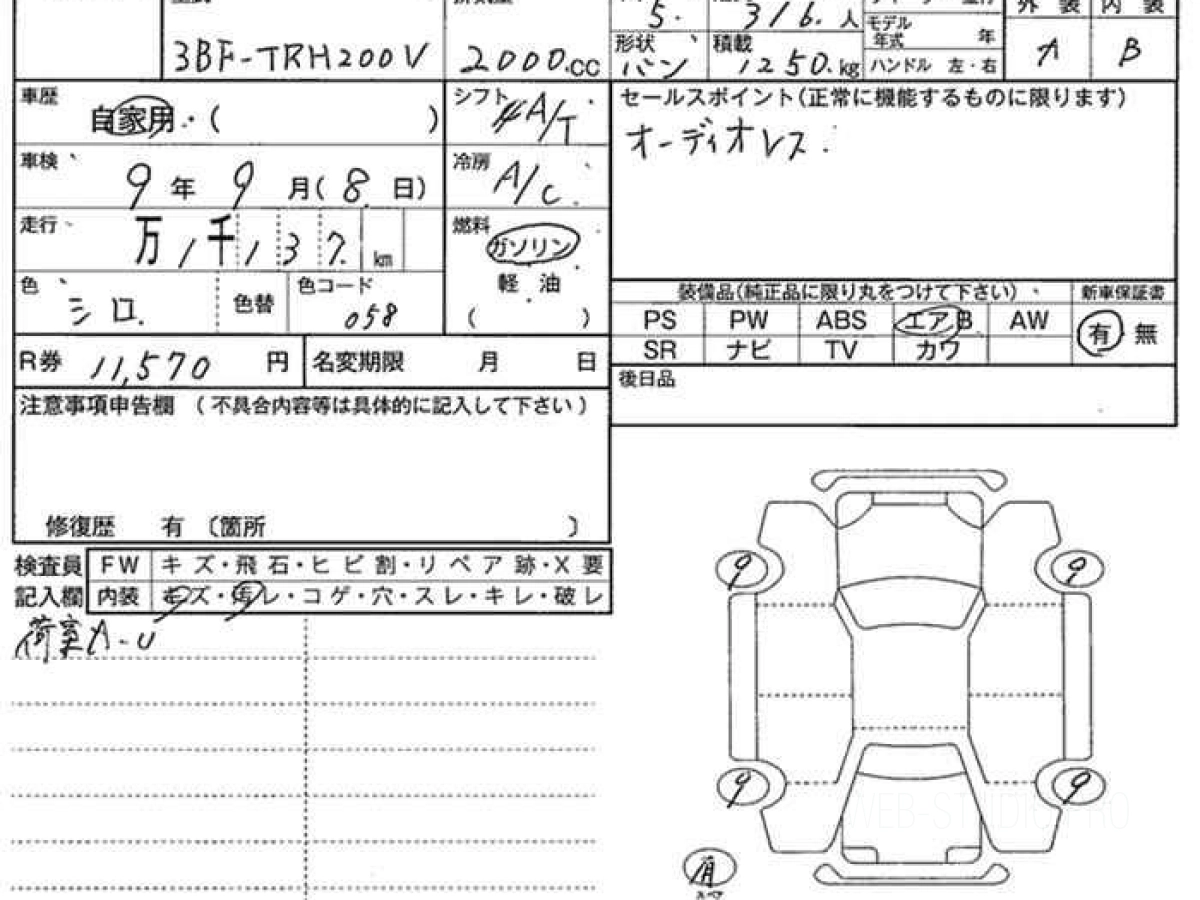 3BF-TRH200V
2000.cc
5.
3/6.人
形状 バン
積載 1250.kg
モデル年式 年
ハンドル 左・右
外装 A
内装 B
車歴 自家用・( )
シフト 4A/T
セールスポイント(正常に機能するものに限ります)
オーディオレス.
車検 9年9月(8日)
冷房 A/C.
走行 万1千137.km
燃料 ガソリン
軽油
( )
色 シロ.
色替
色コード 058
装備品(純正品に限り丸をつけて下さい)
新車保証書
PS PW ABS エアB AW
有 無
SR ナビ TV カワ
R券 11,570円
名変期限 月 日
後日品
注意事項申告欄 (不具合内容等は具体的に記入して下さい)
修復歴 有 〔箇所 〕
検査員記入欄
FW キズ・飛石・ヒビ割・リペア跡・X要
内装 キズ・汚レ・コゲ・穴・スレ・キレ・破レ
荷室A-U
9 9
9 9
WEB-STUDIO.PRO
有
スペア